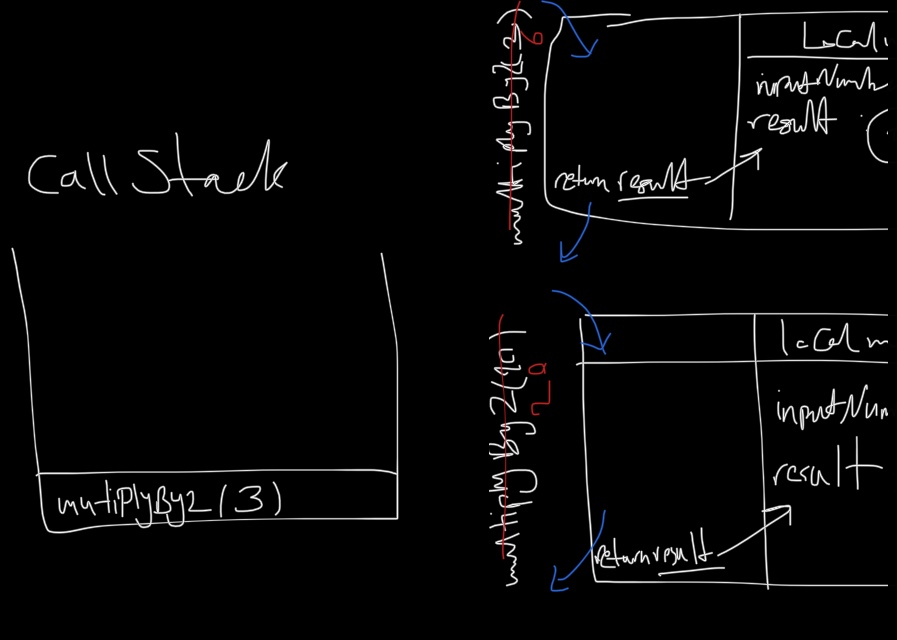 Call Stack
mutiplyBy2(3)
multiply By2(3)
6
Local
inputNumb
result :(
return result
multiply By2(
local m
inputNum
result
return result